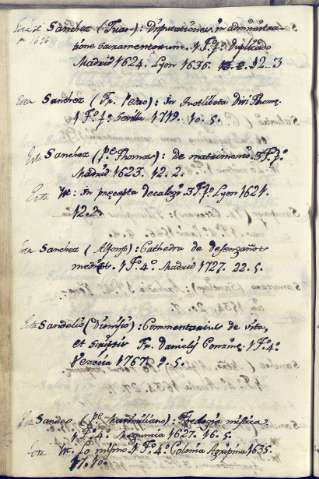 Sanchez (Juan): Disputationes in administra-
tione Sacramentorum. 1 Fº. duplicado
Madrid 1624. Lyon 1636. 12..3
Sanchez (Fr. Pedro): In Instituta Divi Thom.
1 Fº. Sevilla 1719. 10. 5.
Sanchez (Pe. Thomas): de matrimonio 3 Fº.
Madrid 1623. 12. 2.
It: In præcepta decalogi 3 Fº. Lyon 1621.
12. 2.
Sanchez (Alfonso): Cathedra de
1 F 4º. Madrid 1727. 22. 5.
Sandelio (Dionisio): Commentarius de vita,
et scriptis Fr. Danielis Concinæ. 1 F 4º.
1767. 9. 5.
Sandeo (Pe. Maximiliano): Theologia mistica
1 F 4º. Maguncia 1627. 16. 5.
It. Lo mismo 1 F 4º. Colonia Agripina 1635.